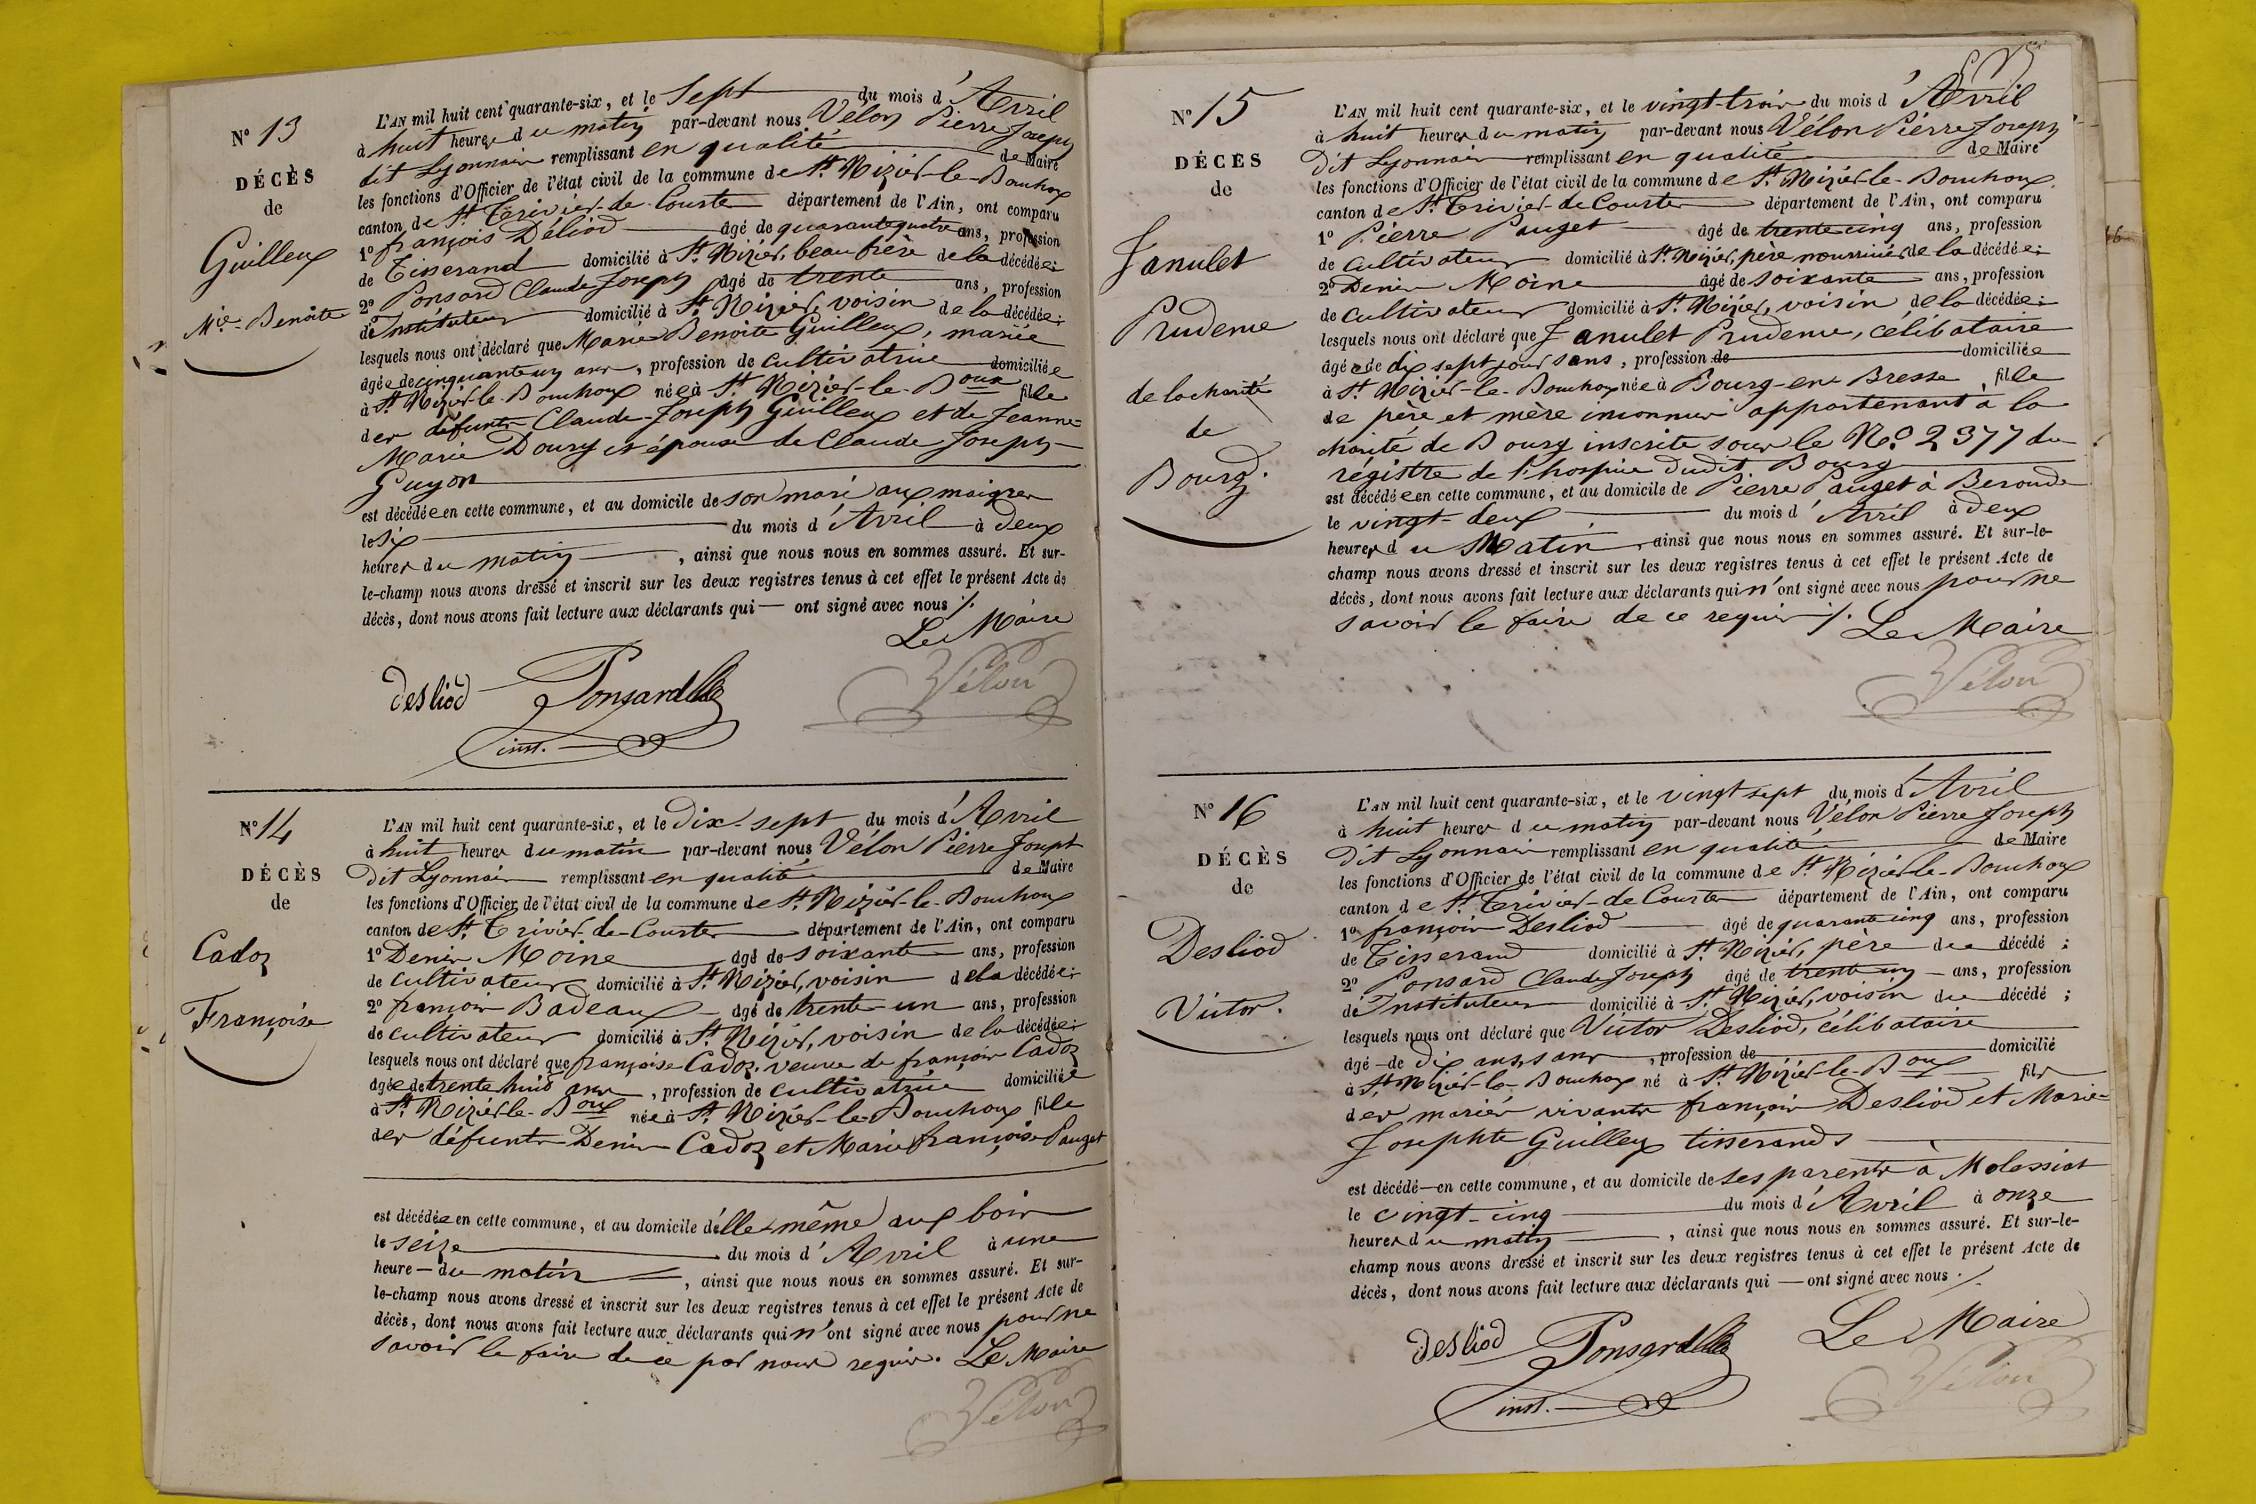 N° 13
DÉCÈS
de
Guilleux
Mie Benoite
L'AN mil huit cent quarante-six, et le Sept du mois d'Avril
à huit heures du matin par-devant nous Vélon Pierre Joseph
dit Lyonnais remplissant en qualité de Maire
les fonctions d'Officier de l'état civil de la commune de St. Nizier-le-Bouchoux
canton de St. Trivier-de-Courtes département de l'Ain, ont comparu
1° françois Déliod âgé de quarante quatre ans, profession
de Tisserand domicilié à St. Nizier, beau frère de la décédée;
2° Ponsard Claude Joseph âgé de trente ans, profession
d'Instituteur domicilié à St. Nizier, voisin de la décédée;
lesquels nous ont déclaré que Marie Benoite Guilleux, mariée
âgée de cinquante un ans, profession de cultivatrice domiciliée
à St. Nizier-le-Bouchoux née à St. Nizier-le-Boux fille
des défunts Claude-Joseph Guilleux et de Jeanne-
Marie Doury et épouse de Claude Joseph
Guyon
est décédée en cette commune, et au domicile de son mari aux maigres
le six du mois d'Avril à deux
heures du matin, ainsi que nous nous en sommes assuré. Et sur-
le-champ nous avons dressé et inscrit sur les deux registres tenus à cet effet le présent Acte de
décès, dont nous avons fait lecture aux déclarants qui — ont signé avec nous ./.
Le Maire
desliod Ponsard Vélon
inst.
N° 14
DÉCÈS
de
Cadoz
Françoise
L'AN mil huit cent quarante-six, et le Dix-sept du mois d'Avril
à huit heures du matin par-devant nous Vélon Pierre Joseph
Dit Lyonnais remplissant en qualité de Maire
les fonctions d'Officier de l'état civil de la commune de St. Nizier-le-Bouchoux
canton de St. Trivier-de-Courtes département de l'Ain, ont comparu
1° Denis Moine âgé de soixante ans, profession
de cultivateur domicilié à St. Nizier, voisin de la décédée;
2° françois Badeaux âgé de trente-un ans, profession
de cultivateur domicilié à St. Nizier, voisin de la décédée;
lesquels nous ont déclaré que françoise Cadoz, veuve de françois Cadoz
âgée de trente huit ans, profession de cultivatrice domiciliée
à St. Nizier-le-Boux née à St. Nizier-le-Bouchoux fille
des défunts Denis Cadoz et Marie françoise Pauget
est décédée en cette commune, et au domicile d'elle-même aux bois
le seize du mois d'Avril à une
heure — du matin, ainsi que nous nous en sommes assuré. Et sur-
le-champ nous avons dressé et inscrit sur les deux registres tenus à cet effet le présent Acte de
décès, dont nous avons fait lecture aux déclarants qui n'ont signé avec nous pour ne
savoir le faire de ce par nous requis. Le Maire
Vélon
N° 15
DÉCÈS
de
Janulet
Prudence
de la charité
de
Bourg.
L'AN mil huit cent quarante-six, et le vingt-trois du mois d'Avril
à huit heures du matin par-devant nous Vélon Pierre Joseph
Dit Lyonnais remplissant en qualité de Maire
les fonctions d'Officier de l'état civil de la commune de St. Nizier-le-Bouchoux
canton de St. Trivier-de-Courtes département de l'Ain, ont comparu
1° Pierre Pauget âgé de trente cinq ans, profession
de cultivateur domicilié à St. Nizier, père nourricier de la décédée;
2° Denis Moine âgé de soixante ans, profession
de cultivateur domicilié à St. Nizier, voisin de la décédée;
lesquels nous ont déclaré que Janulet Prudence, célibataire
âgée de dix sept jours ans, profession de domiciliée
à St. Nizier-le-Bouchoux née à Bourg-en-Bresse, fille
de père et mère inconnus appartenant à la
charité de Bourg inscrite sous le No. 2377 du
régistre de l'hospice dudit Bourg
est décédée en cette commune, et au domicile de Pierre Pauget à Beroude
le vingt-deux du mois d'Avril à deux
heures du Matin, ainsi que nous nous en sommes assuré. Et sur-le-
champ nous avons dressé et inscrit sur les deux registres tenus à cet effet le présent Acte de
décès, dont nous avons fait lecture aux déclarants qui n'ont signé avec nous pour ne
savoir le faire de ce requis ./. Le Maire
Vélon
N° 16
DÉCÈS
de
Desliod
Victor.
L'AN mil huit cent quarante-six, et le vingt sept du mois d'Avril
à huit heures du matin par-devant nous Vélon Pierre Joseph
Dit Lyonnais remplissant en qualité de Maire
les fonctions d'Officier de l'état civil de la commune de St. Nizier-le-Bouchoux
canton de St. Trivier-de-Courtes département de l'Ain, ont comparu
1° françois Desliod âgé de quarante cinq ans, profession
de Tisserand domicilié à St. Nizier, père du décédé;
2° Ponsard Claude Joseph âgé de trente un — ans, profession
d'Instituteur domicilié à St. Nizier, voisin du décédé;
lesquels nous ont déclaré que Victor Desliod, célibataire
âgé — de dix ans, profession de domicilié
à St. Nizier-le-Bouchoux né à St. Nizier-le-Boux fils
des mariés vivants françois Desliod et Marie-
Josephte Guilleux tisserands
est décédé — en cette commune, et au domicile de ses parents à Molassiat
le vingt-cinq du mois d'Avril à onze
heures du matin, ainsi que nous nous en sommes assuré. Et sur-le-
champ nous avons dressé et inscrit sur les deux registres tenus à cet effet le présent Acte de
décès, dont nous avons fait lecture aux déclarants qui — ont signé avec nous ./.
desliod Ponsard Le Maire
inst. Vélon